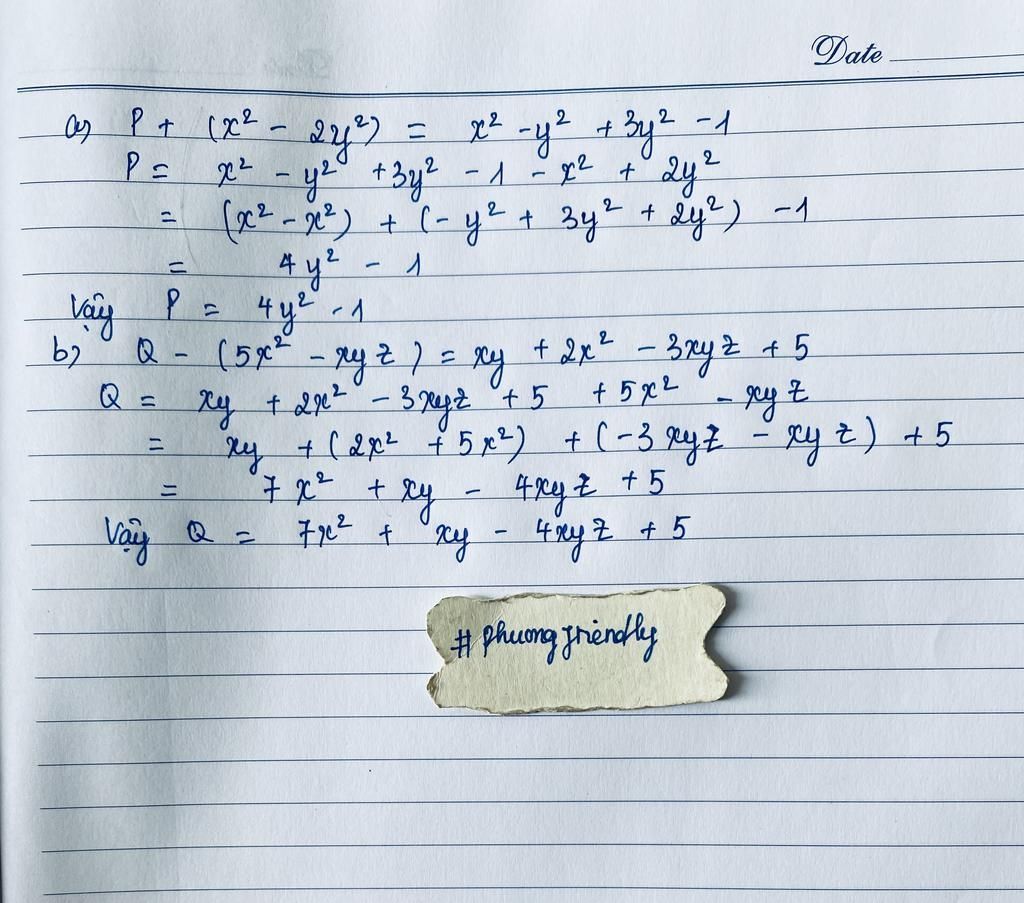 Date
a, P + (x² - 2y²) = x² - y² + 3y² - 1
P = x² - y² + 3y² - 1 - x² + 2y²
= (x² - x²) + (- y² + 3y² + 2y²) - 1
= 4y² - 1
Vậy P = 4y² - 1
b, Q - (5x² - xyz) = xy + 2x² - 3xyz + 5
Q = xy + 2x² - 3xyz + 5 + 5x² - xyz
= xy + (2x² + 5x²) + (-3xyz - xyz) + 5
= 7x² + xy - 4xyz + 5
Vậy Q = 7x² + xy - 4xyz + 5
# phuongfriendly